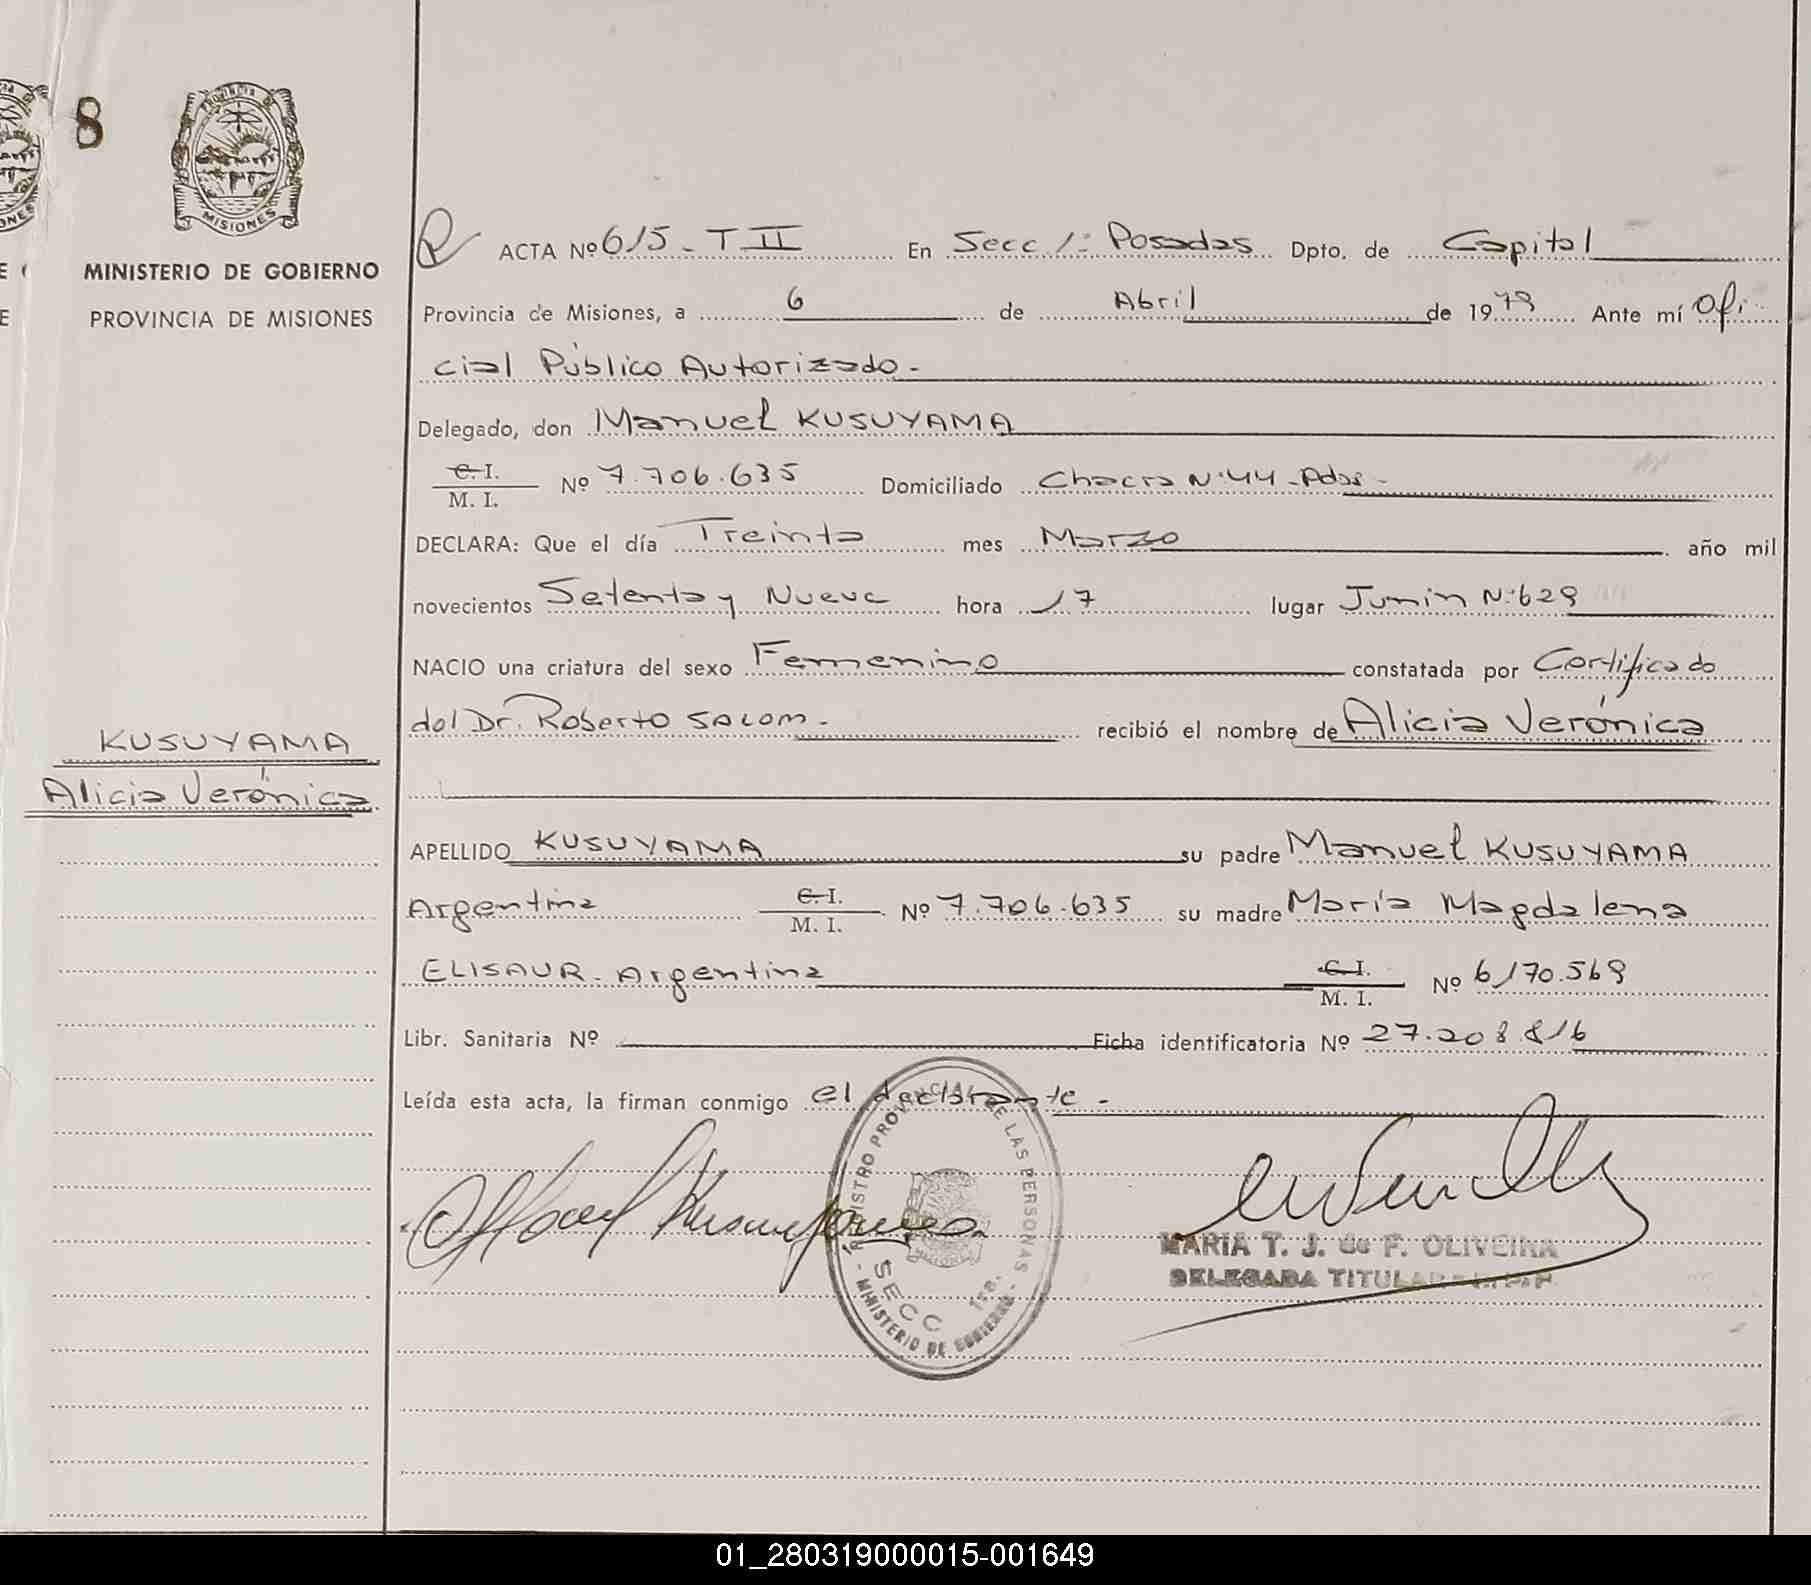 8
PROVINCIA DE
MISIONES
MINISTERIO DE GOBIERNO
PROVINCIA DE MISIONES
KUSUYAMA
Alicia Verónica
ACTA Nº 615 - T II En Secc 1ª Posadas Dpto. de Capital
Provincia de Misiones, a 6 de Abril de 1979 Ante mí Ofi
cial Público Autorizado -
Delegado, don Manuel KUSUYAMA
C. I.
M. I. Nº 7.706.635 Domiciliado Chacra Nº 44 - Pdas -
DECLARA: Que el día Treinta mes Marzo año mil
novecientos Setenta y Nueve hora 17 lugar Junín Nº 629
NACIO una criatura del sexo Femenino constatada por Certificado
del Dr. Roberto SALOM - recibió el nombre de Alicia Verónica
APELLIDO KUSUYAMA su padre Manuel KUSUYAMA
Argentina C. I. M. I. Nº 7.706.635 su madre María Magdalena
ELISAUR - Argentina C. I. M. I. Nº 6170.569
Libr. Sanitaria Nº Ficha identificatoria Nº 27.208.816
Leída esta acta, la firman conmigo el declarante -
REGISTRO PROVINCIAL DE LAS PERSONAS
SECC 1ra.
- MINISTERIO DE GOBIERNO -
MARIA T. J. de F. OLIVEIRA
DELEGADA TITULAR
01_280319000015-001649